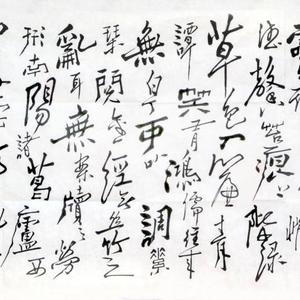 德馨苔痕上階綠
草色入簾青
譚笑有鴻儒往来
無白丁可以調素
琴閱金經無絲竹之
亂耳無案牘之勞
形南陽諸葛廬西